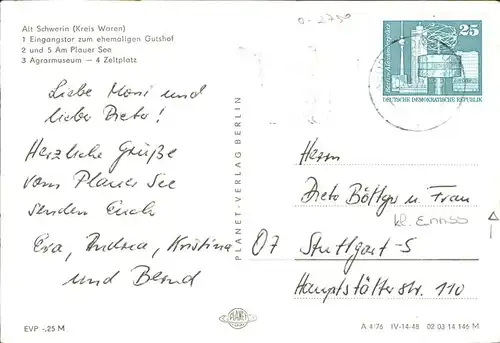 Alt Schwerin (Kreis Waren)
1 Eingangstor zum ehemaligen Gutshof
2 und 5 Am Plauer See
3 Agrarmuseum — 4 Zeltplatz
Liebe Moni und
lieber Dieto!
Herzliche Grüße
vom Plauer See
senden Euch
Eva, Andrea, Kristina
und Bernd
EVP -,25 M
PLANET-VERLAG BERLIN
PLANET
25
DEUTSCHE DEMOKRATISCHE REPUBLIK
Herrn
Dieto Böttger u. Frau
07 Stuttgart-S
Hauptstätter Str. 110
A 4/76 IV-14-48 02 03 14 146 M